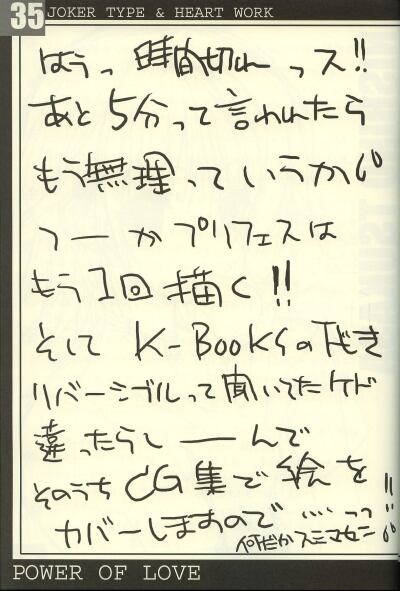 35 JOKER TYPE & HEART WORK
はうっ 時間切れ っス!!
あと5分って言われたら
もう無理っていうか。
つーかプリフェスは
もう1回描く!!
そして K-BOOKSの下じき
リバーシブルって聞いてたケド
違ったらしーんで
そのうちCG集で絵を
カバーしますので……っっ!!
何だかスミマセン。
POWER OF LOVE